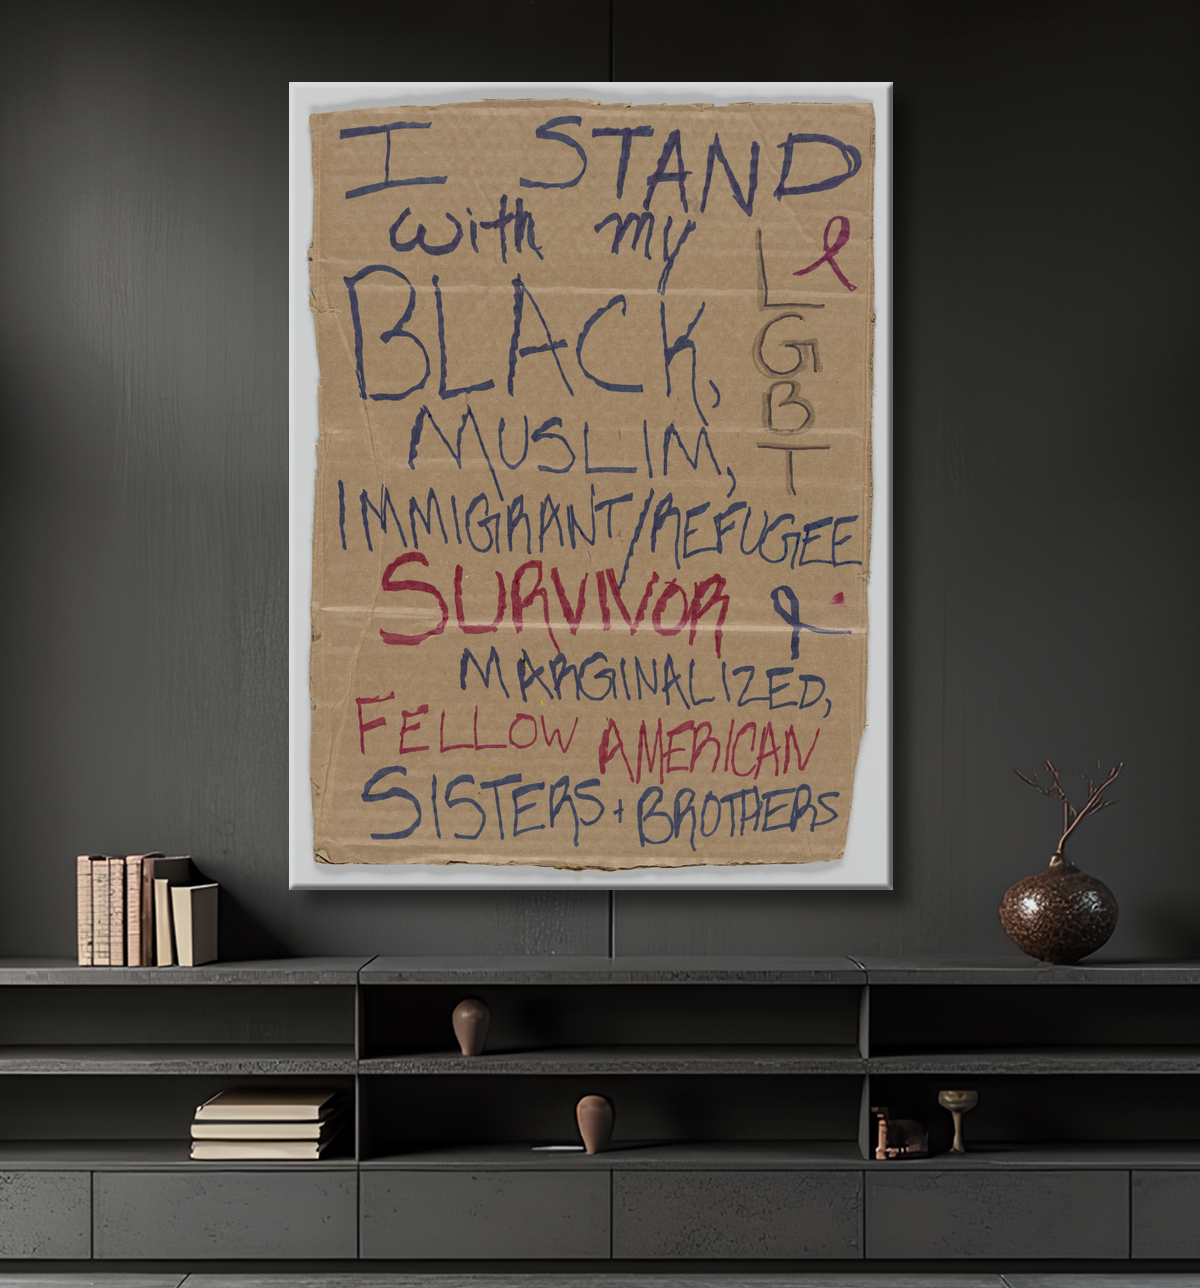 I STAND
with my
LGBT
BLACK,
MUSLIM,
IMMIGRANT/REFUGEE
SURVIVOR
MARGINALIZED,
FELLOW AMERICAN
SISTERS + BROTHERS